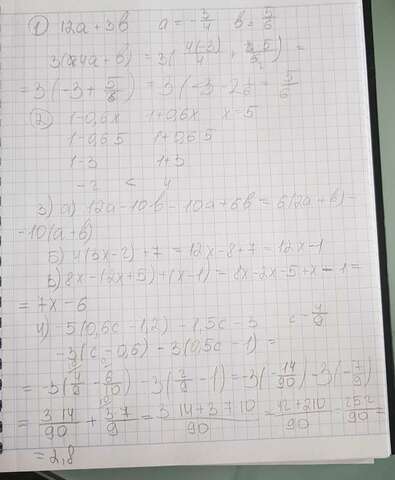 ① 12a + 3b   a = -3/4   b = 5/6
3(4a + b) = 3(4(-3)/4 +
= 3(-3 + 5/6) = 3(-3
② 1-0,6x   1+0,6x   x-5
1-0,6 5   1+0,6 5
1-3   1+3
-2 < 4
3) а) 12a - 10b - 10a + 6b = 6(2a + b) -
-10(a + b)
б) 4(3x-2) + 7 = 12x - 8 + 7 = 12x - 1
в) 8x - (2x+5) + (x-1) = 8x - 2x - 5 + x - 1 =
= 7x - 6
4) -5(0,6c - 1,2) - 1,5c - 3   c - 4/9
-3(c - 0,6) - 3(0,5c - 1) =
= -3(4/9 - 6/10) - 3(2/9 - 1) = -3(-14/90) - 3(-7/9)
= 3 14/90 + 3 7/9 = 3 14 + 3 7 10/90 = 42 + 210/90 = 252/90 =
= 2,8